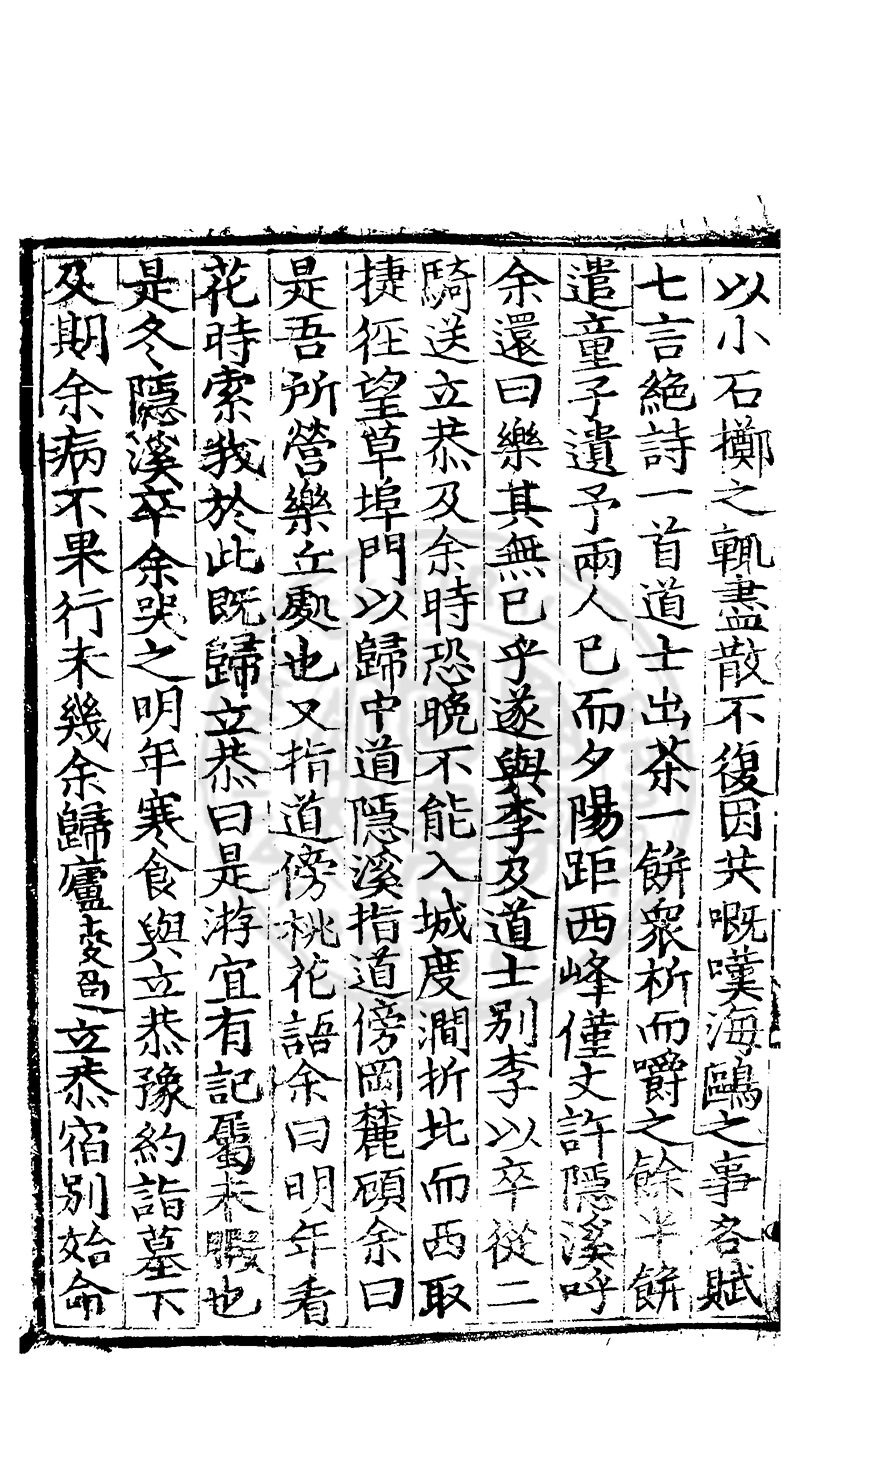 以小石擲之輒盡散不復因共嘅嘆海鷗之事各賦
七言絶詩一首道士出茶一餅衆析而嚼之餘半餅
遣童子遺予兩人已而夕陽距西峰僅丈許隠溪呼
余還曰樂其無已乎遂與李及道士别李以卒從二
騎送立恭及余時恐晚不能入城度澗折北而西取
捷徑望草埠門以歸中道隠溪指道傍岡麓顧余曰
是吾所營樂丘處也又指道傍桃花語余曰明年看
花時索我於此既歸立恭曰是游宜有記屬未暇也
是冬隠溪卒余哭之明年寒食與立恭豫約詣墓下
及期余病不果行未幾余歸廬陵過立恭宿别始命